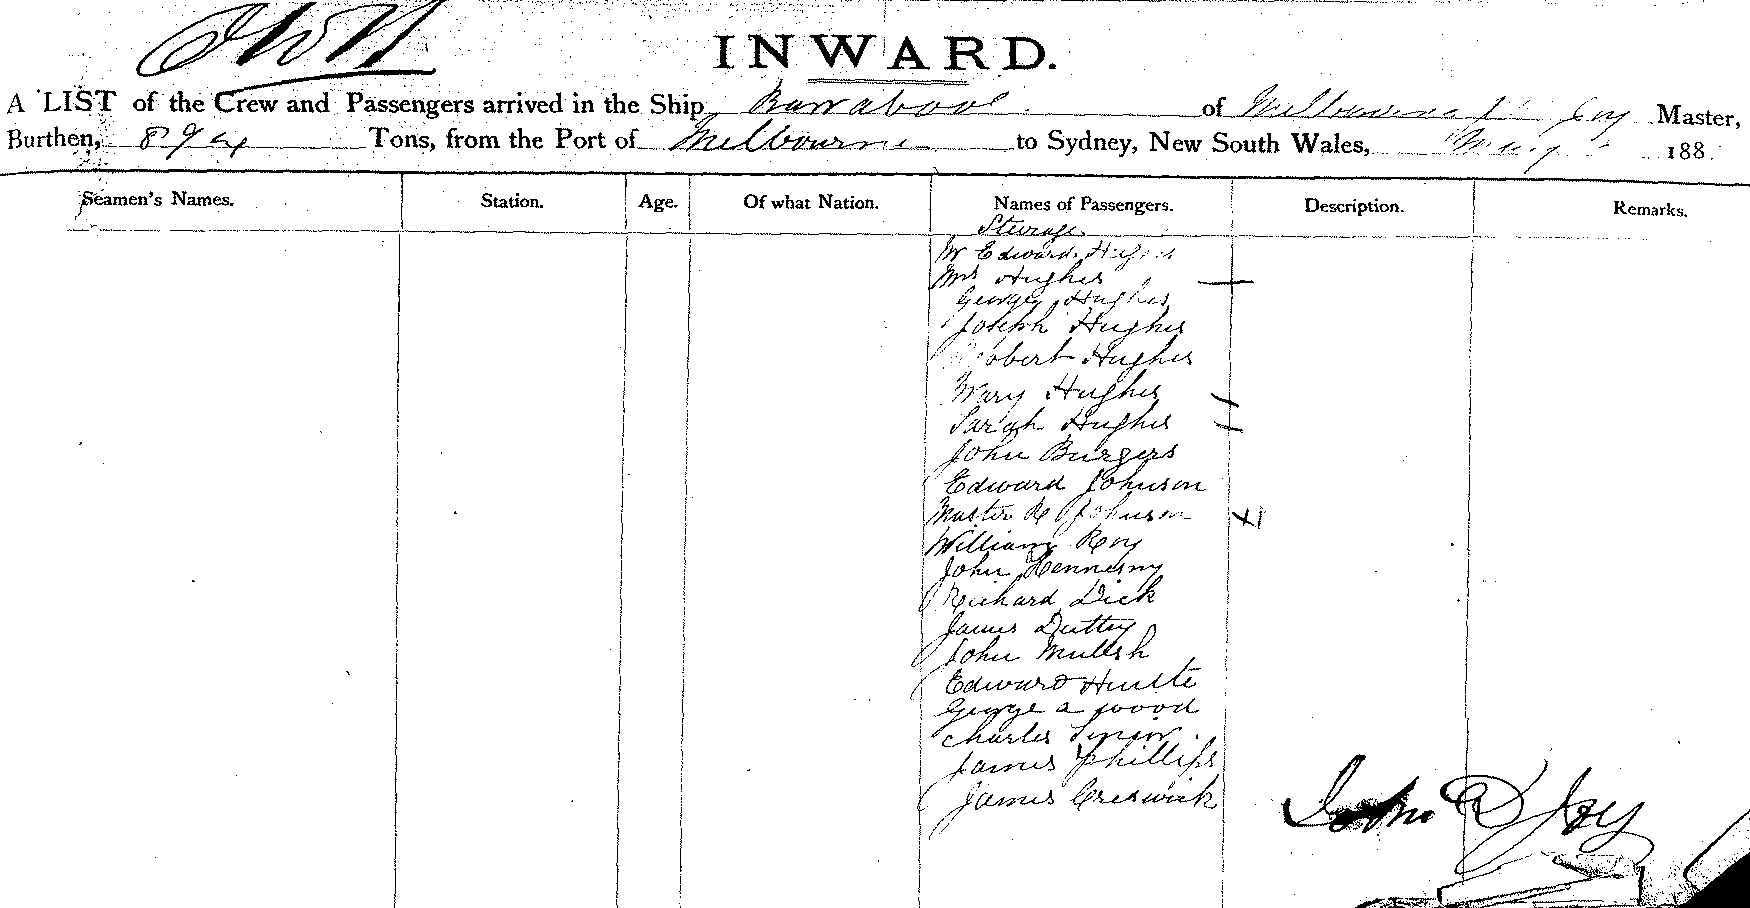 INWARD.
A LIST of the Crew and Passengers arrived in the Ship Barrabool of Melbourne Joy Master,
Burthen, 894 Tons, from the Port of Melbourne to Sydney, New South Wales, 188
Seamen's Names. Station. Age. Of what Nation. Names of Passengers. Description. Remarks.
Steerage
Mr Edward Hughes
Mrs Hughes
George Hughes
Joseph Hughes
Robert Hughes
Mary Hughes
Sarah Hughes
John Burgers
Edward Johnson
Master R Johnson
William Roy
John Hennesny
Richard Dick
James Duttey
John
Edward
George a wood
Charles
James Phillips
James Creswick
John Joy